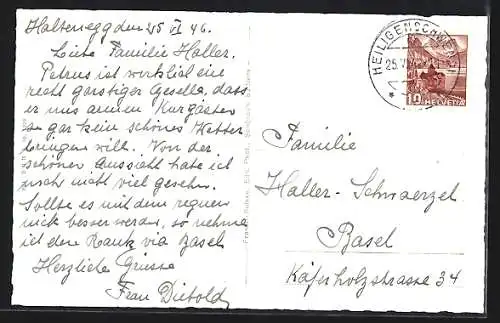 Haltenegg den 25 VI 46.
Liebe Familie Haller.
Petrus ist wirklich eine
recht garstiger Geselle, dass
er uns armen Kurgästen
so gar kein schönes Wetter
bringen will. Von der
schönen Aussicht habe ich
noch nicht viel gesehen.
Sollte es mit dem regnen
nicht besser werden, so nehme
ich den Rank via Basel
Herzliche Grüsse
Frau Dietold
HEILIGENSCHWENDI
25. VI.
10 HELVETIA
Familie
Haller-Schwaerzel
Basel
Käferholzstrasse 34